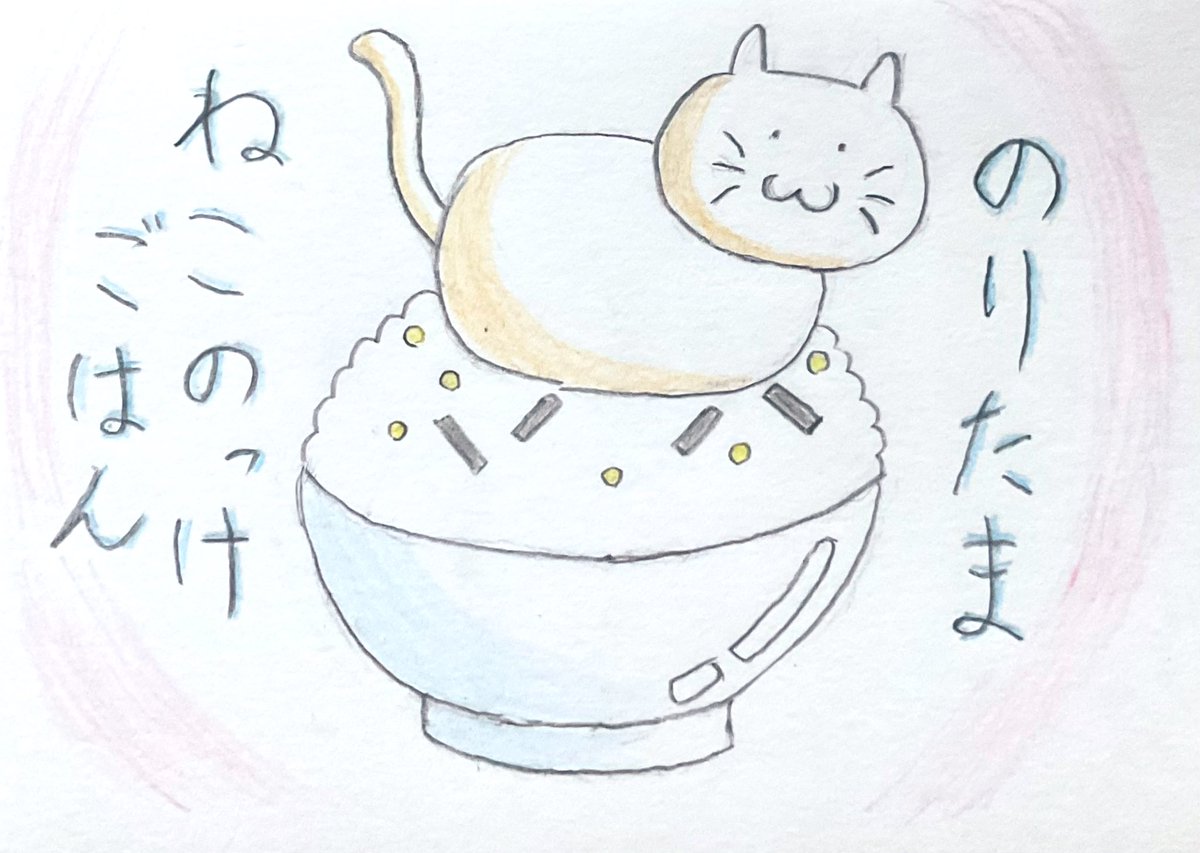 のりたま
ねこのっけ
ごはん